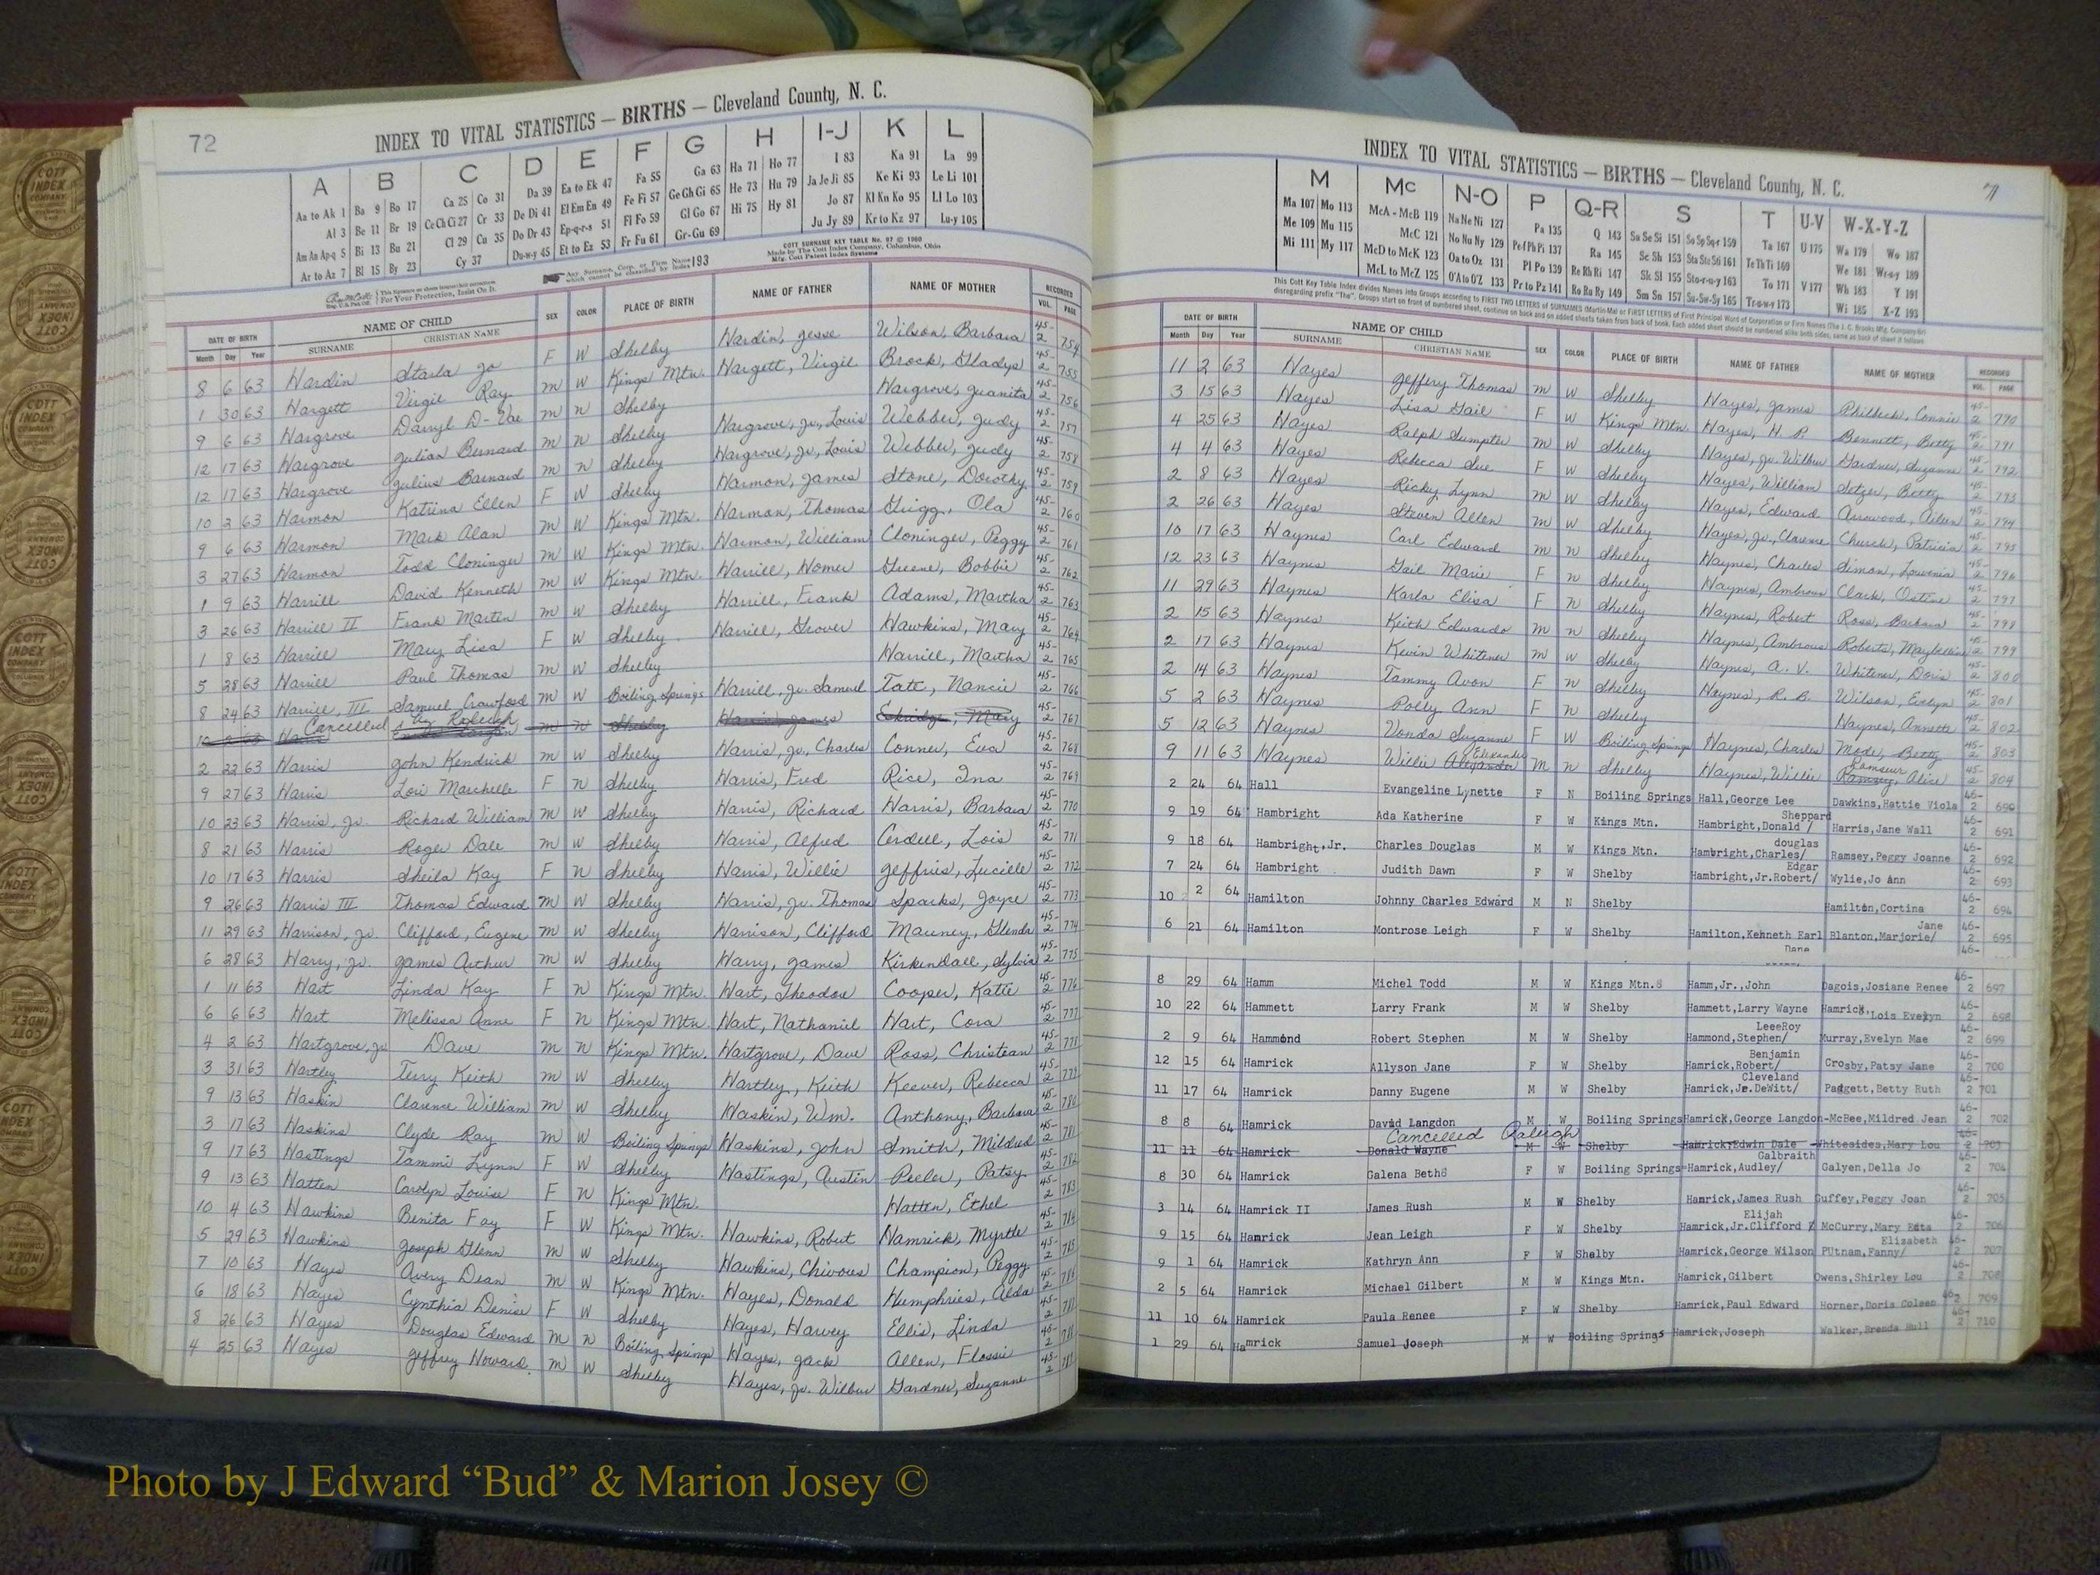 72
INDEX TO VITAL STATISTICS — BIRTHS — Cleveland County, N. C.
A B C D E F G H I-J K L
Aa to Ak 1 Ba 9 Bo 17 Ca 25 Co 31 Da 39 Ea to Ek 47 Fa 55 Ga 63 Ha 71 Ho 77 I 83 Ka 91 La 99
Al 3 Be 11 Br 19 Ce Ch Ci 27 Cr 33 De Di 41 El Em En 49 Fe Fi 57 Ge Gh Gi 65 He 73 Hu 79 Ja Je Ji 85 Ke Ki 93 Le Li 101
Am An Ap-q 5 Bi 13 Bu 21 Cl 29 Cu 35 Do Dr 43 Ep-q-r-s 51 Fl Fo 59 Gl Go 67 Hi 75 Hy 81 Jo 87 Kl Kn Ko 95 Ll Lo 103
Ar to Az 7 Bl 15 By 23 Cy 37 Du-w-y 45 Et to Ez 53 Fr Fu 61 Gr-Gu 69 Ju Jy 89 Kr to Kz 97 Lu-y 105
COTT SURNAME KEY TABLE No. 97 © 1960
Made by The Cott Index Company, Columbus, Ohio
For Your Protection, Insist On It.
Any Surname, Corp. or Firm Name which cannot be classified by index 193
DATE OF BIRTH NAME OF CHILD SEX COLOR PLACE OF BIRTH NAME OF FATHER NAME OF MOTHER RECORDED
Month Day Year SURNAME CHRISTIAN NAME VOL. PAGE
8 6 63 Hardin Starla Jo F W Shelby Hardin, Jesse Wilson, Barbara 45-2 754
1 30 63 Hargett Virgil Ray M W Kings Mtn. Hargett, Virgil Brock, Gladys 45-2 755
9 6 63 Hargrove Darryl D- M N Shelby Hargrove, Juanita 45-2 756
12 17 63 Hargrove Julian Bernard M N Shelby Hargrove, Jr., Louis Webber, Judy 45-2 757
12 17 63 Hargrove Julius Barnard M N Shelby Hargrove, Jr., Louis Webber, Judy 45-2 758
10 2 63 Harmon Katrina Ellen F W Shelby Harmon, James Stone, Dorothy 45-2 759
9 6 63 Harmon Mark Alan M W Kings Mtn. Harmon, Thomas Grigg, Ola 45-2 760
3 27 63 Harmon Todd Cloninger M W Kings Mtn. Harmon, William Cloninger, Peggy 45-2 761
1 9 63 Harrill David Kenneth M W Kings Mtn. Harrill, Homer Greene, Bobbie 45-2 762
3 26 63 Harrill II Frank Martin M W Shelby Harrill, Frank Adams, Martha 45-2 763
1 8 63 Harrill Mary Lisa F W Shelby Harrill, Grover Hawkins, Mary 45-2 764
5 28 63 Harrill Paul Thomas M W Shelby Harrill, Martha 45-2 765
8 24 63 Harrill, III Samuel Crawford M W Boiling Springs Harrill, Jr. Samuel Tate, Nancie 45-2 766
Cancelled by Raleigh M N Shelby Harris, James Eskridge, Mary 45-2 767
2 22 63 Harris John Kendrick M W Shelby Harris, Jr., Charles Conner, Eva 45-2 768
9 27 63 Harris Lori Marchelle F N Shelby Harris, Fred Rice, Ina 45-2 769
10 23 63 Harris, Jr. Richard William M W Shelby Harris, Richard Harris, Barbara 45-2 770
8 21 63 Harris Roger Dale M W Shelby Harris, Alfred Cordell, Lois 45-2 771
10 17 63 Harris Sheila Kay F N Shelby Harris, Willie Jeffries, Lucille 45-2 772
9 26 63 Harris III Thomas Edward M W Shelby Harris, Jr. Thomas Sparks, Joyce 45-2 773
11 29 63 Harrison, Jr. Clifford, Eugene M W Shelby Harrison, Clifford Mauney, Glenda 45-2 774
6 28 63 Harry, Jr. James Arthur M W Shelby Harry, James Kirkendall, Sylvia 45-2 775
1 11 63 Hart Linda Kay F N Kings Mtn. Hart, Theodore Cooper, Katie 45-2 776
6 6 63 Hart Melissa Anne F N Kings Mtn. Hart, Nathaniel Hart, Cora 45-2 777
4 2 63 Hartgrove, Jr. Dave M N Kings Mtn. Hartgrove, Dave Ross, Christean 45-2 778
3 31 63 Hartley Terry Keith M W Shelby Hartley, Keith Keever, Rebecca 45-2 779
9 13 63 Haskin Clarence William M W Shelby Haskin, Wm. Anthony, Barbara 45-2 780
3 17 63 Haskins Clyde Ray M W Boiling Springs Haskins, John Smith, Mildred 45-2 781
9 17 63 Hastings Tammi Lynn F W Shelby Hastings, Austin Peeler, Patsy 45-2 782
9 13 63 Hatten Carolyn Louise F N Kings Mtn. Hatten, Ethel 45-2 783
10 4 63 Hawkins Benita Fay F W Kings Mtn. Hawkins, Robert Hamrick, Myrtle 45-2 784
5 29 63 Hawkins Joseph Glenn M W Shelby Hawkins, Chivous Champion, Peggy 45-2 785
7 10 63 Hayes Avery Dean M W Kings Mtn. Hayes, Donald Humphries, Alda 45-2 786
6 18 63 Hayes Cynthia Denise F W Shelby Hayes, Harvey Ellis, Linda 45-2 787
8 26 63 Hayes Douglas Edward M N Boiling Springs Hayes, Jack Allen, Flossie 45-2 788
4 25 63 Hayes Jeffrey Howard M W Shelby Hayes, Jr. Wilbur Gardner, Suzanne 45-2 789
INDEX TO VITAL STATISTICS — BIRTHS — Cleveland County, N. C.
71
M Mc N-O P Q-R S T U-V W-X-Y-Z
Ma 107 Mo 113 McA - McB 119 Na Ne Ni 127 Pa 135 Q 143 Sa Se Si 151 So Sp Sq-r 159 Ta 167 U 175 Wa 179 Wo 187
Me 109 Mu 115 McC 121 No Nu Ny 129 Pe Pf Ph Pi 137 Ra 145 Sc Sh 153 Sta Ste Sti 161 Te Th Ti 169 We 181 Wr-u-y 189
Mi 111 My 117 McD to McK 123 Oa to Oz 131 Pl Po 139 Re Rh Ri 147 Sk Sl 155 Sto-r-u-y 163 To 171 V 177 Wh 183 Y 191
McL to McZ 125 O'A to O'Z 133 Pr to Pz 141 Ro Ru Ry 149 Sm Sn 157 Su-Sw-Sy 165 Tr-u-w-y 173 Wi 185 X-Z 193
This Cott Key Table Index divides Names into Groups according to FIRST TWO LETTERS of SURNAMES (Martin-Ma) or FIRST LETTERS of First Principal Word of Corporation or Firm Names
disregarding prefix "The". Groups start on front of numbered sheet, continue on back and on added sheets taken from back of book. Each added sheet should be numbered alike both sides, same as back of sheet it follows
DATE OF BIRTH NAME OF CHILD SEX COLOR PLACE OF BIRTH NAME OF FATHER NAME OF MOTHER RECORDED
Month Day Year SURNAME CHRISTIAN NAME VOL. PAGE
11 2 63 Hayes Jeffery Thomas M W Shelby Hayes, James Philbeck, Connie 45-2 790
3 15 63 Hayes Lisa Gail F W Kings Mtn. Hayes, H. P. Bennett, Betty 45-2 791
4 25 63 Hayes Ralph Sumpter M W Shelby Hayes, Jr. Wilbur Gardner, Suzanne 45-2 792
4 4 63 Hayes Rebecca Sue F W Shelby Hayes, William Setzer, Betty 45-2 793
2 8 63 Hayes Ricky Lynn M W Shelby Hayes, Edward Arrowood, Aileen 45-2 794
2 26 63 Hayes Steven Allen M W Shelby Hayes, Jr., Clarence Church, Patricia 45-2 795
10 17 63 Haynes Carl Edward M N Shelby Haynes, Charles Simon, Louvenia 45-2 796
12 23 63 Haynes Gail Marie F N Shelby Haynes, Ambrous Clark, Ostine 45-2 797
11 29 63 Haynes Karla Elisa F N Shelby Haynes, Robert Ross, Barbara 45-2 798
2 15 63 Haynes Keith Edwardo M N Shelby Haynes, Ambrous Roberts, Maybelline 45-2 799
2 17 63 Haynes Kevin Whitener M W Shelby Haynes, A. V. Whitener, Doris 45-2 800
2 14 63 Haynes Tammy Avon F N Shelby Haynes, R. B. Wilson, Evelyn 45-2 801
5 2 63 Haynes Polly Ann F N Shelby Haynes, Annette 45-2 802
5 12 63 Haynes Vonda Suzanne F W Boiling Springs Haynes, Charles Mode, Betty 45-2 803
9 11 63 Haynes Willie Alexander Elexander M N Shelby Haynes, Willie Ramsey Ramseur, Alice 45-2 804
2 24 64 Hall Evangeline Lynette F N Boiling Springs Hall,George Lee Dawkins,Hattie Viola 46-2 690
9 19 64 Hambright Ada Katherine F W Kings Mtn. Hambright,Donald / Sheppard Harris,Jane Wall 46-2 691
9 18 64 Hambright,Jr. Charles Douglas M W Kings Mtn. Hambright,Charles/ douglas Ramsey,Peggy Joanne 46-2 692
7 24 64 Hambright Judith Dawn F W Shelby Hambright,Jr.Robert/ Edgar Wylie,Jo Ann 46-2 693
10 2 64 Hamilton Johnny Charles Edward M N Shelby Hamilton,Cortina 46-2 694
6 21 64 Hamilton Montrose Leigh F W Shelby Hamilton,Kenneth Earl Blanton,Marjorie/ Jane 46-2 695
46-
8 29 64 Hamm Michel Todd M W Kings Mtn. Hamm,Jr.,John Dagois,Josiane Renee 46-2 697
10 22 64 Hammett Larry Frank M W Shelby Hammett,Larry Wayne Hamrick,Lois Evelyn 46-2 698
2 9 64 Hammond Robert Stephen M W Shelby Hammond,Stephen/ LeeeRoy Murray,Evelyn Mae 46-2 699
12 15 64 Hamrick Allyson Jane F W Shelby Hamrick,Robert/ Benjamin Crosby,Patsy Jane 46-2 700
11 17 64 Hamrick Danny Eugene M W Shelby Hamrick,Jr.DeWitt/ Cleveland Padgett,Betty Ruth 46-2 701
8 8 64 Hamrick David Langdon M W Boiling Springs Hamrick,George Langdon-McBee,Mildred Jean 46-2 702
Cancelled Raleigh
11 11 64 Hamrick Donald Wayne M W Shelby Hamrick,Edwin Dale Whitesides,Mary Lou 46-2 703
8 30 64 Hamrick Galena Beth F W Boiling Springs Hamrick,Audley/ Galbraith Galyen,Della Jo 46-2 704
3 14 64 Hamrick II James Rush M W Shelby Hamrick,James Rush Guffey,Peggy Joan 46-2 705
9 15 64 Hamrick Jean Leigh F W Shelby Hamrick,Jr.Clifford / Elijah McCurry,Mary Edta 46-2 706
9 1 64 Hamrick Kathryn Ann F W Shelby Hamrick,George Wilson PUtnam,Fanny/ Elizabeth 46-2 707
2 5 64 Hamrick Michael Gilbert M W Kings Mtn. Hamrick,Gilbert Owens,Shirley Lou 46-2 708
11 10 64 Hamrick Paula Renee F W Shelby Hamrick,Paul Edward Horner,Doris Coleen 46-2 709
1 29 64 Hamrick Samuel Joseph M W Boiling Springs Hamrick,Joseph Walker,Brenda Hull 46-2 710
Photo by J Edward “Bud” & Marion Josey ©